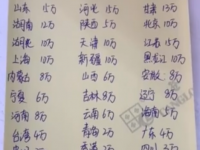 山东 15万 河北 15万 甘肃 13万
湖南 12万 陕西 5万 北京 10万
河北 10万 天津 10万 江苏 15万
上海 10万 新疆 10万 黑龙江 10万
内蒙古 8万 山西 6万 安徽 8万
宁夏 6万 吉林 8万 辽宁 8万
河南 8万 云南 6万 海南 5万
台湾 4万 青海 2万 广东 4万